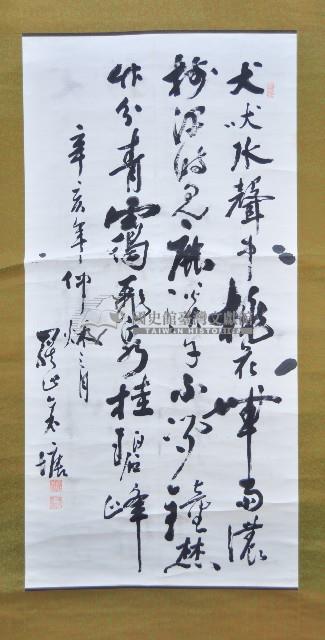 犬吠水聲中桃花帶雨濃
樹深時見鹿溪午不聞鐘埜
竹分青靄飛泉挂碧峰
辛亥年仲秋之月
羅山
國史館臺灣文獻館
TAIWAN HISTORICA